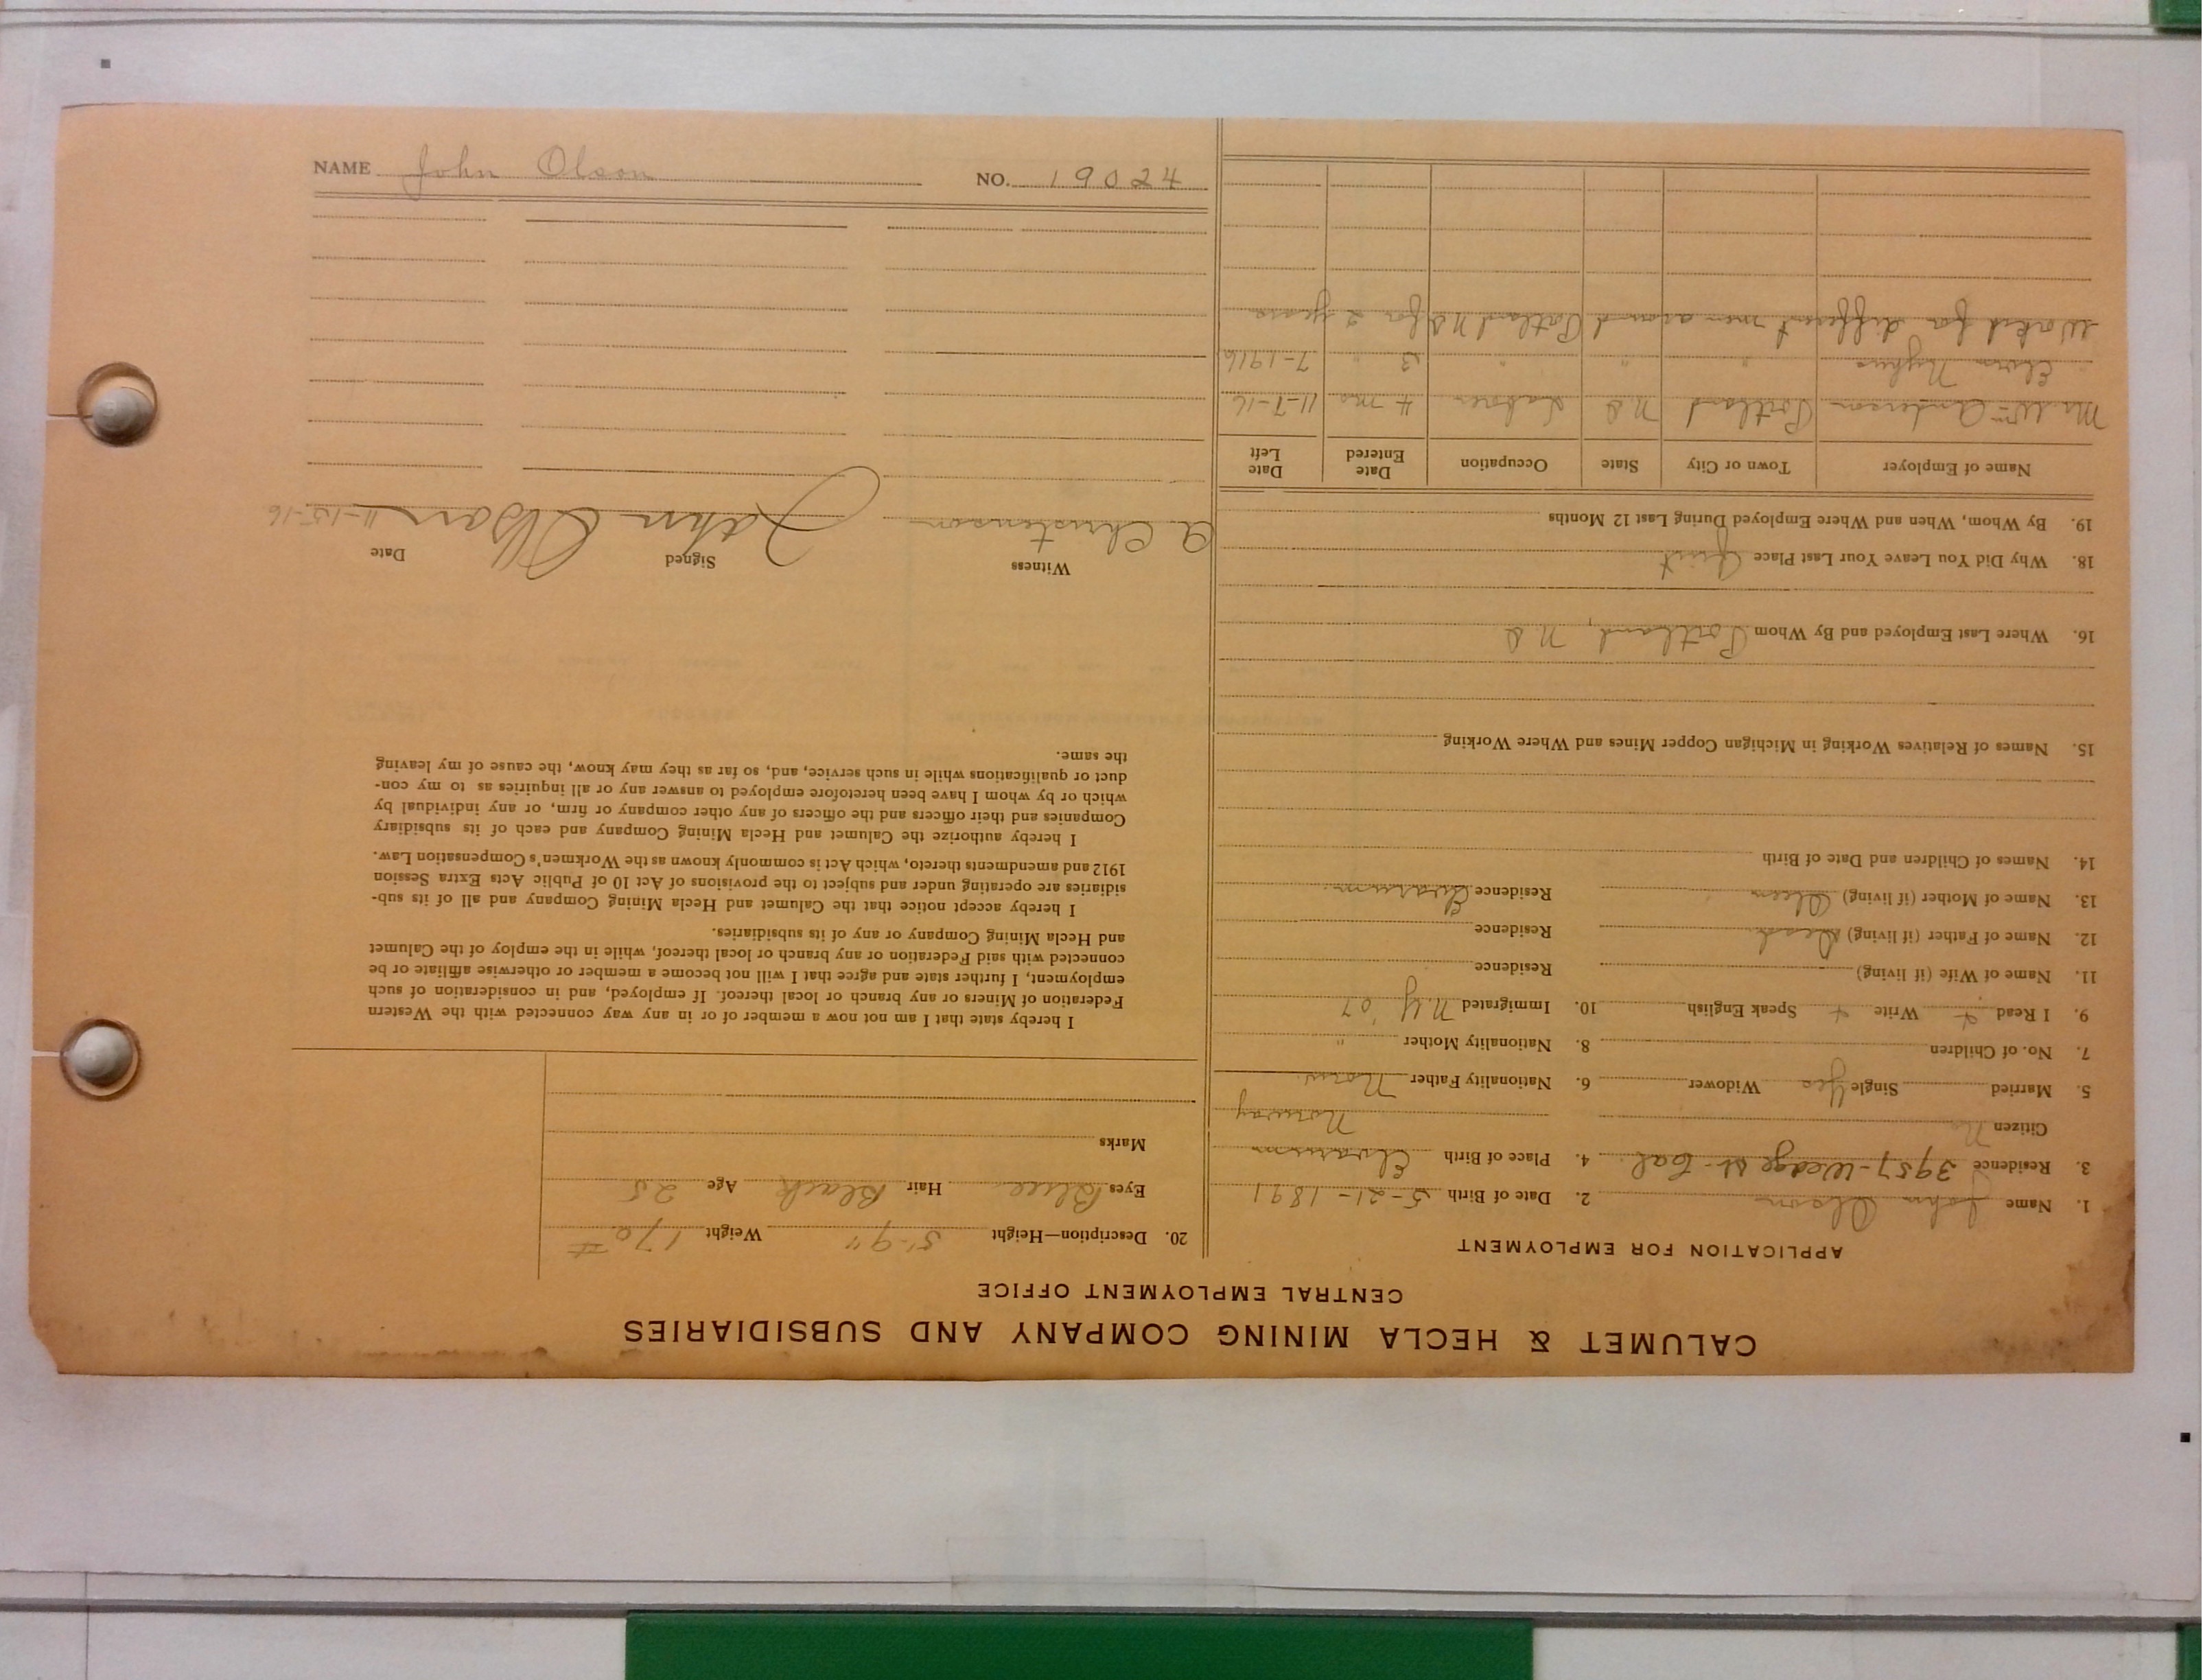 NAME John Olson NO. 19024
CALUMET & HECLA MINING COMPANY AND SUBSIDIARIES
CENTRAL EMPLOYMENT OFFICE
APPLICATION FOR EMPLOYMENT
1. Name John Olson 2. Date of Birth 5-21-1891
3. Residence 3957-Wedge St. Cal. 4. Place of Birth
Citizen No Norway
5. Married Single Yes Widower 6. Nationality Father Norw.
7. No. of Children 8. Nationality Mother "
9. I Read + Write + Speak English 10. Immigrated N.Y '07
11. Name of Wife (if living) Residence
12. Name of Father (if living) Dead Residence
13. Name of Mother (if living) Residence
14. Names of Children and Date of Birth
15. Names of Relatives Working in Michigan Copper Mines and Where Working
16. Where Last Employed and By Whom Portland, N D
18. Why Did You Leave Your Last Place Quit
19. By Whom, When and Where Employed During Last 12 Months
Name of Employer Town or City State Occupation Date Entered Date Left
Mr. Wm Anderson Portland N D Laborer 4 mos 11-7-16
Nyhus " " " 3 " 7-1916
Worked for different men around Portland N D for 2 years
20. Description—Height 5'-9" Weight 170 #
Eyes Blue Hair Black Age 25
Marks
I hereby state that I am not now a member of or in any way connected with the Western
Federation of Miners or any branch or local thereof. If employed, and in consideration of such
employment, I further state and agree that I will not become a member or otherwise affiliate or be
connected with said Federation or any branch or local thereof, while in the employ of the Calumet
and Hecla Mining Company or any of its subsidiaries.
I hereby accept notice that the Calumet and Hecla Mining Company and all of its sub-
sidiaries are operating under and subject to the provisions of Act 10 of Public Acts Extra Session
1912 and amendments thereto, which Act is commonly known as the Workmen's Compensation Law.
I hereby authorize the Calumet and Hecla Mining Company and each of its subsidiary
Companies and their officers and the officers of any other company or firm, or any individual by
which or by whom I have been heretofore employed to answer any or all inquiries as to my con-
duct or qualifications while in such service, and, so far as they may know, the cause of my leaving
the same.
Witness Signed Date
A Christenson John Olson 11-15-16